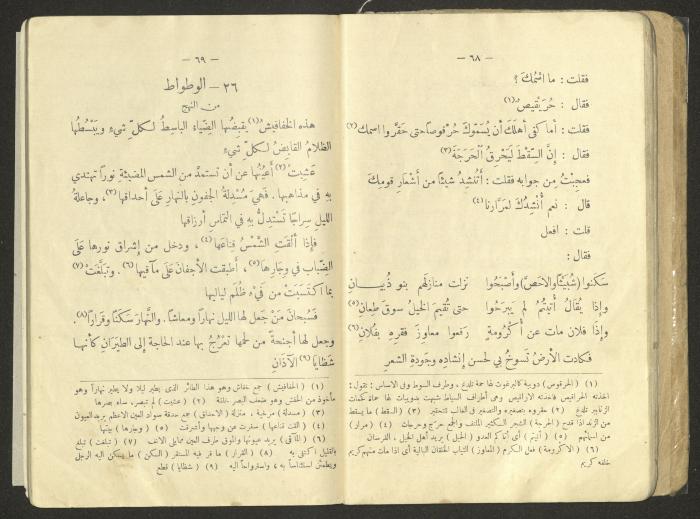 — ٦٨ —
فقلت : ما اسْمُكَ ؟
فقال : حُرَيْقيصٌ (١)
فقلت : أما كفى أهلَكَ أن يُسَمّوكَ حُرْقوصاً حتى حَقَّروا اسمك (٢)
فقال : إنَّ السِّقْطَ لَيَحْرِقُ الْحَرَجَةَ (٣)
فعجِبْتُ مِن جوابه فقلت : أتُنشِدُ شيئًا من أشْعَارِ قومِكَ
قال : نعم أُنْشِدُكَ لمرّارِنا (٤)
قلت : افعل
فقال :
سكنوا (شُبَيْثًا والأحَصَّ) وأَصْبَحُوا نزلت منازلَهم بنو ذُبيــان
وإذا يُقَالُ أُتِيتُمُ لم يبرَحُوا حتى تُقيمَ الخيلُ سوقَ طِعانِ (٥)
وإذا فلان مات عن أُكْرُومةٍ رفعوا معاوزَ فقرِهِ بفُلانِ (٦)
فكادت الأرضُ تَسوخُ بي لحسن إنشادِه وجَودةِ الشعرِ
(١) (الحرقوص) دويبة كالبرغوث لها حمة تلدغ ، وطرف السوط وفي الاساس : تقول :
اخذته الحراقيص فاخذته الاراقيص وهى أطراف السياط شبهت بدويبات لها حماة كحمات
الزنابير تلدغ (٢) حقروه بتصغيره والتصغير فى الغالب للتحقير (٣) (السقط) ما يسقط
من الزند اذا قدح (الحرجة) الشجر الكثير الملتف والجمع حرج وحرجات (٤) (مرار)
من اسمائهم (٥) أتيتم ) أى أتاكم العدو (الخيل) يريد أهل الخيل ، الفرسان
(٦) (الاكرومة) فعل الكرم (المعاوز) الثياب الخلقان البالية أى اذا مات منهم كريم
خلفه كريم
— ٦٩ —
٢٦ – الوطواط
من النهج
هذه الخفافيشُ (١) يقبِضُها الضِّياء الباسطُ لكلِّ شيءٍ ويَبْسُطُها
الظلامُ القابِضُ لكلِّ شيءٍ
عَشِيَتْ (٢) أعيُنُها عن أن تستمدَّ من الشمسِ المضيئةِ نوراً تهتدي
بهِ في مذاهبِها . فهيَ مُسْدِلةُ الجفونِ بالنهارِ عَلَى أحداقها (٣)، وجاعلةُ
الليلِ سِراجاً تَستدِلُّ بهِ في التِماسِ أرزاقها
فإذا ألْقَتِ الشَّمْسُ قِناعَها (٤)، ودخل من إشراق نورها عَلَى
الضِّباب في وِجارِها (٥)، أطبقت الأجفانَ عَلَى مآقيها (٦) . وتبلَّغَتْ (٧)
بما اكتَسَبَتْ من فَيْءِ ظُلَمِ لياليها
فسُبحانَ مَنْ جعل لها الليلَ نهاراً ومعاشاً . والنَّهارَ سَكَنًا وقراراً (٨).
وجعل لها أجنحةً من لحمها تعرُجُ بها عند الحاجةِ إلى الطيرانِ كأنـها
شظايَا (٩) الآذانِ
(١) (الخفافيش) جمع خفاش وهو هذا الطائر الذى يطير ليلا ولا يطير نهاراً وهو
مأخوذ من الخفش وهو ضعف البصر خلقة (٢) (عشيت) لم تبصر، ساء بصرها
(٣) (مسدلة) مرخية ، منزلة (الاحداق) جمع حدقة سواد العين الاعظم يريد العيون
(٤) القت قناعها) سفرت عن وجهها وأشرقت (٥) وجارها) بيتها
(٦) (المآقى) يريد عيونها والموق طرف العين ممايلى الانف (٧) (تبلغت) تبلغ
بالقليل اكتفى به (٨) (القرار) ما قر فيه المستقر (السكن) ما يسكن اليه الرجل
ويطمئن استئناساً به ، واسترواحاً اليه (٩) (شظايا) قطع